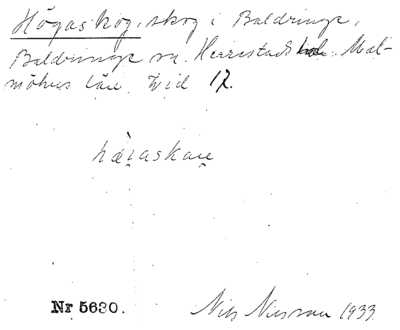 Högaskog, skog i Baldringe,
Baldringe sn. Herrestads hd. Mal-
möhus län. Vid 17.
Nr 5630.
Nils Nilsson 1933.